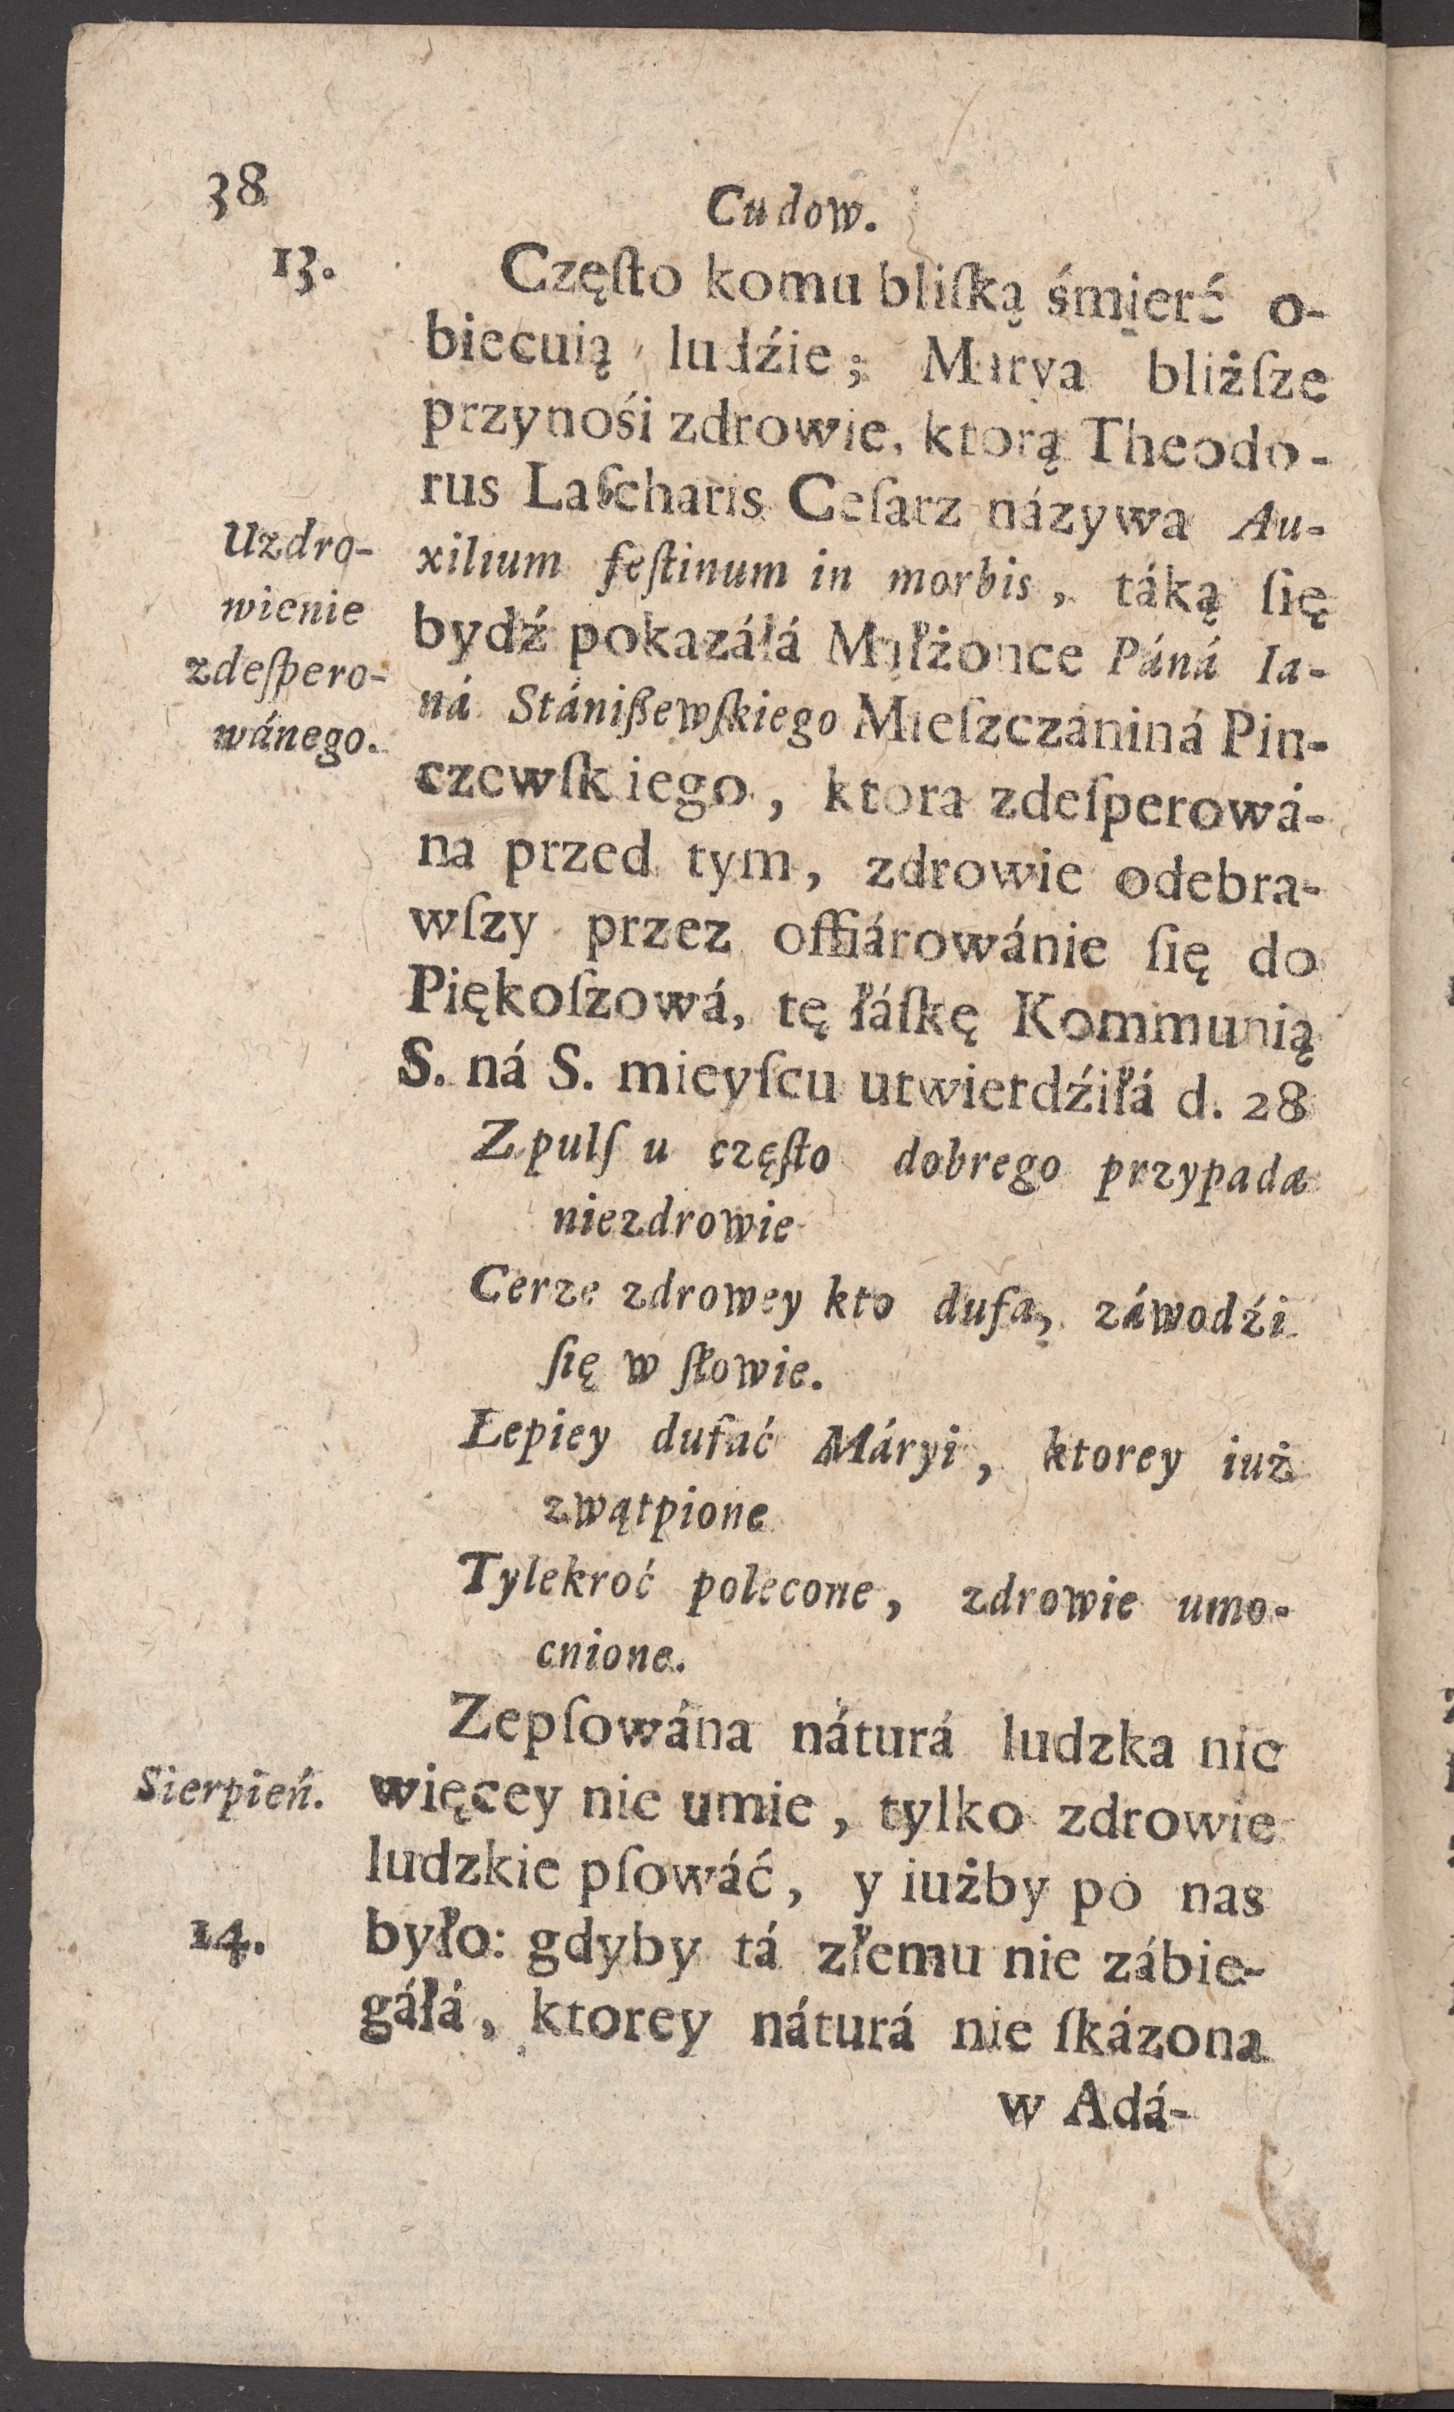 38
Cudow.
13.
Częſto komu bliſką śmierć o-
biecuią ludźie; Marya bliżſze
przynośi zdrowie, ktorą Theodo-
rus Laſcharis Ceſarz názywa Au-
xilium feſtinum in morbis, táką ſię
bydź pokazáłá Małżonce Páná Ia-
ná Stánißewſkiego Mieſzczániná Pin-
czewſkiego, ktora zdeſperowá-
na przed tym, zdrowie odebra-
wſzy przez offiárowánie ſię do
Piękoſzowá, tę łáſkę Kommunią
S. ná S. mieyſcu utwierdźiłá d. 28
Uzdro-
wienie
zdeſpero-
wánego.
Z pulſu częſto dobrego przypada
niezdrowie
Cerze zdrowey kto dufa, záwodźi
ſię w ſłowie.
Lepiey dufać Máryi, ktorey iuż
zwątpione
Tylekroć polecone, zdrowie umo-
cnione.
Zepſowána náturá ludzka nic
więcey nie umie, tylko zdrowie
ludzkie pſowáć, y iużby po nas
było: gdyby tá złemu nie zábie-
gáłá, ktorey náturá nie ſkázona
Sierpień.
14.
w Adá-